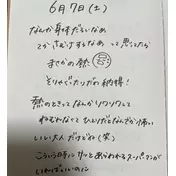 6月7日(土)
なんか身体だるいなぁ
てかさむけすんなぁ って思ってたら
まさかの熱
そりゃでたりだの納得!
熱のときってなんかソワソワして
ねむたなってひとりだとなんだか怖い
いい大人だけどね(笑)
こういう時にサッとあらわれるスーパーマンが
いればいいのに